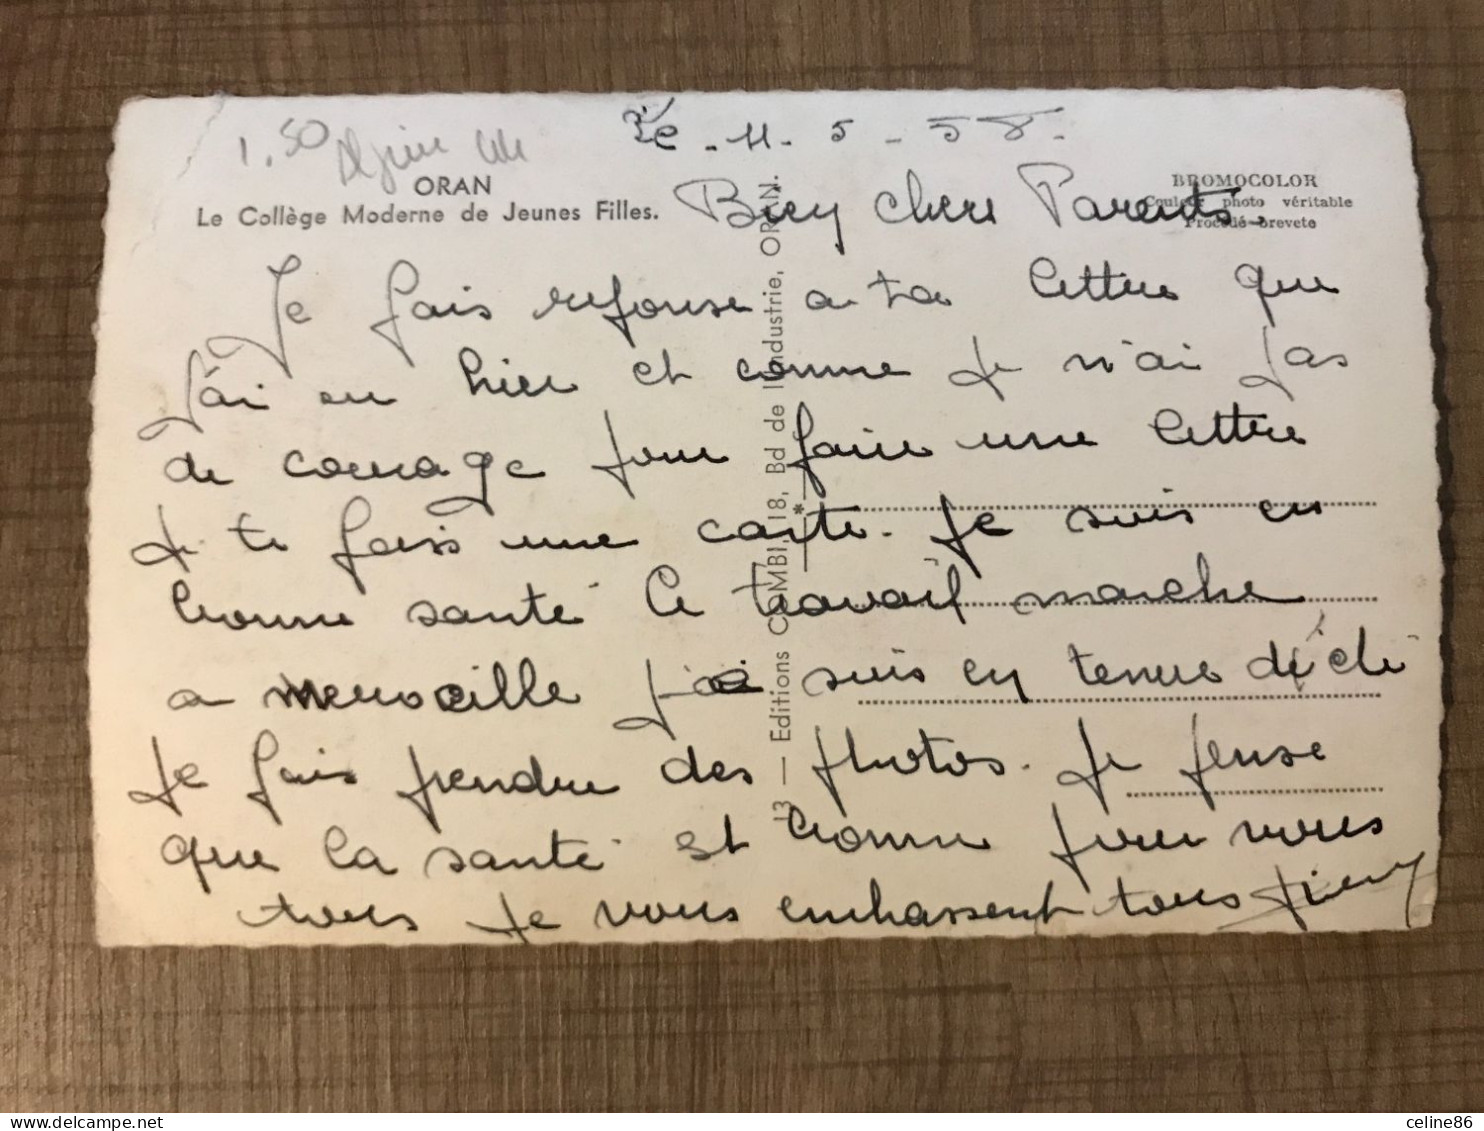 1.50
Le 11-5-58.
ORAN
Le Collège Moderne de Jeunes Filles.
BROMOCOLOR
Couleur photo véritable
Procédé breveté
Bien chers Parents.
Je fais reponse a ta lettre que
J'ai eu hier et comme je n'ai pas
de courage pour faire une lettre
je te fais une carte. Je suis en
bonne santé le travail marche
a merveille je suis en tenue d'été
je fais prendre des photos. Je pense
que la santé est bonne pour vous
tous Je vous embrassent tous
13 — Editions COMBI, 18, Bd de l'Industrie, ORAN.
*
celine86